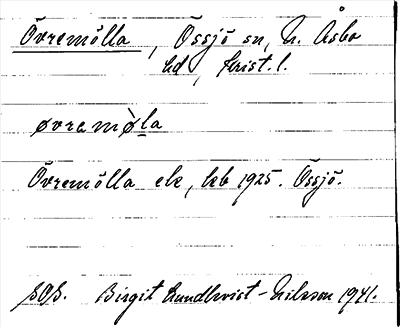 Övremölla, Össjö sn, N. Åsbo
hd, Krist. l.
øvremø̀la
Övremölla ek, kb 1925. Össjö.
Birgit Lundkvist-Nilsson 1941.